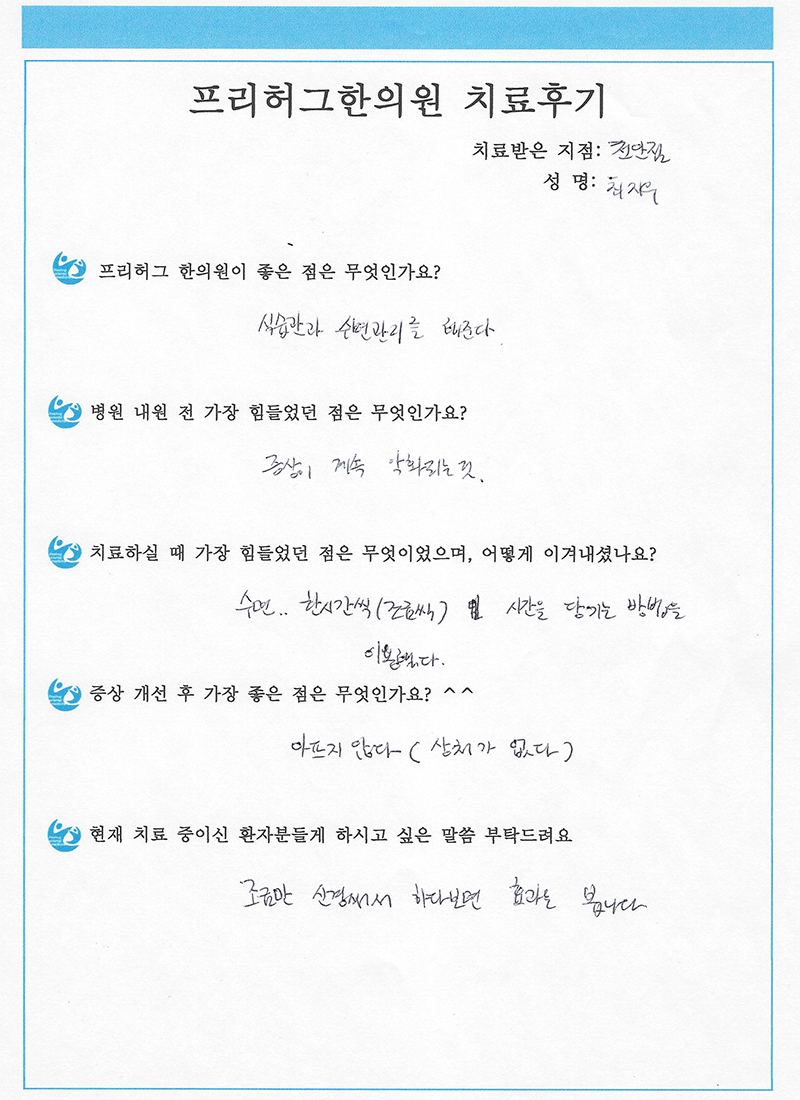 프리허그한의원 치료후기
치료받은 지점: 천안점
성 명: 최지우
프리허그 한의원이 좋은 점은 무엇인가요?
식습관과 수면관리를 해준다.
병원 내원 전 가장 힘들었던 점은 무엇인가요?
증상이 계속 악화되는 것.
치료하실 때 가장 힘들었던 점은 무엇이었으며, 어떻게 이겨내셨나요?
수면.. 한시간씩(조금씩) 시간을 당기는 방법을
이용했다.
증상 개선 후 가장 좋은 점은 무엇인가요? ^^
아프지 않다 (상처가 없다)
현재 치료 중이신 환자분들게 하시고 싶은 말씀 부탁드려요
조금만 신경써서 하다보면 효과는 봅니다